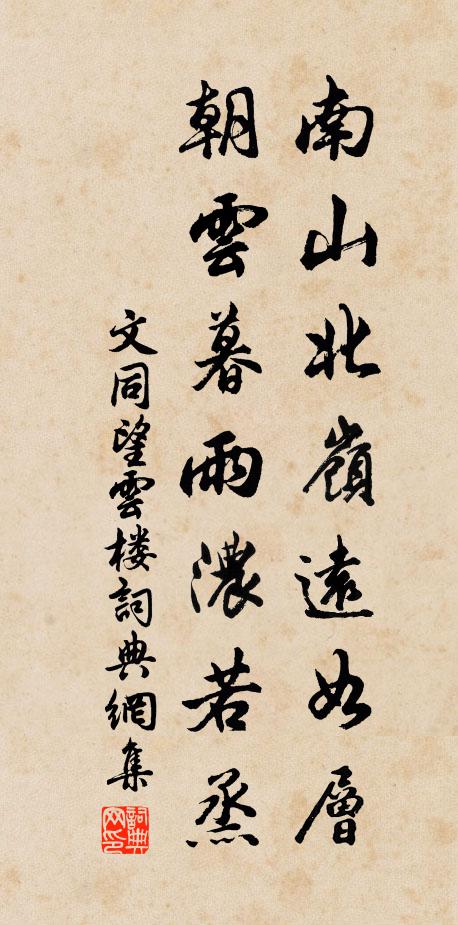 南山北嶺遠如層
朝雲暮雨濃若蒸
文同望雲楼詞典網集
詞典網印